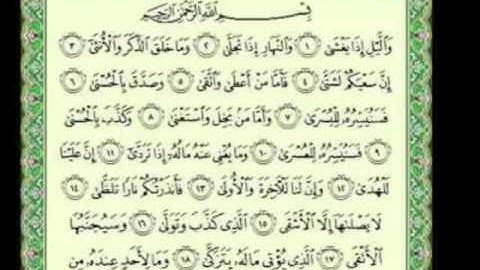 بِسْمِ اللَّهِ الرَّحْمَٰنِ الرَّحِيمِ
وَاللَّيْلِ إِذَا يَغْشَىٰ ١ وَالنَّهَارِ إِذَا تَجَلَّىٰ ٢ وَمَا خَلَقَ الذَّكَرَ وَالْأُنثَىٰ ٣
إِنَّ سَعْيَكُمْ لَشَتَّىٰ ٤ فَأَمَّا مَنْ أَعْطَىٰ وَاتَّقَىٰ ٥ وَصَدَّقَ بِالْحُسْنَىٰ ٦
فَسَنُيَسِّرُهُ لِلْيُسْرَىٰ ٧ وَأَمَّا مَن بَخِلَ وَاسْتَغْنَىٰ ٨ وَكَذَّبَ بِالْحُسْنَىٰ
٩ فَسَنُيَسِّرُهُ لِلْعُسْرَىٰ ١٠ وَمَا يُغْنِي عَنْهُ مَالُهُ إِذَا تَرَدَّىٰ ١١ إِنَّ عَلَيْنَا
لَلْهُدَىٰ ١٢ وَإِنَّ لَنَا لَلْآخِرَةَ وَالْأُولَىٰ ١٣ فَأَنذَرْتُكُمْ نَارًا تَلَظَّىٰ ١٤
لَا يَصْلَاهَا إِلَّا الْأَشْقَى ١٥ الَّذِي كَذَّبَ وَتَوَلَّىٰ ١٦ وَسَيُجَنَّبُهَا
الْأَتْقَى ١٧ الَّذِي يُؤْتِي مَالَهُ يَتَزَكَّىٰ ١٨ وَمَا لِأَحَدٍ عِندَهُ مِن